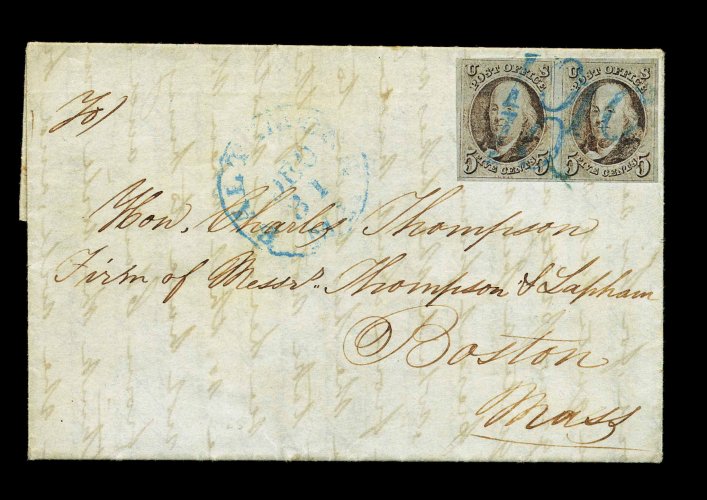 U S
POST OFFICE
FIVE CENTS
5 5
U S
POST OFFICE
FIVE CENTS
5 5
To/
DEC
31
Hon. Charles Thompson
Firm of Messrs. Thompson & Lapham
Boston
Mass